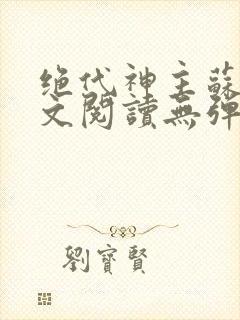 绝代神主蘇
文閱讀無彈
劉寶賢